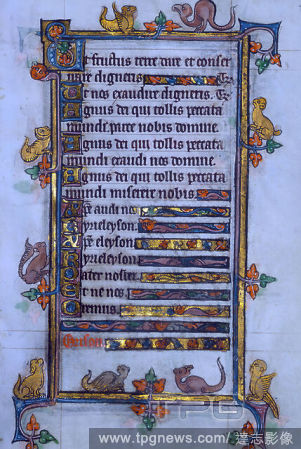 Ut fructus terre dare et conser
uare digneris
Ut nos exaudire digneris
Agnus dei qui tollis peccata
mundi parce nobis domine
Agnus dei qui tollis peccata
mundi exaudi nos domine
Agnus dei qui tollis peccata
mundi miserere nobis
Xpe audi nos
Kyrieleyson
Xpe eleyson
Kyrieleyson
Pater noster
Et ne nos
Oremus
TPG
www.tpgnews.com/達志影像